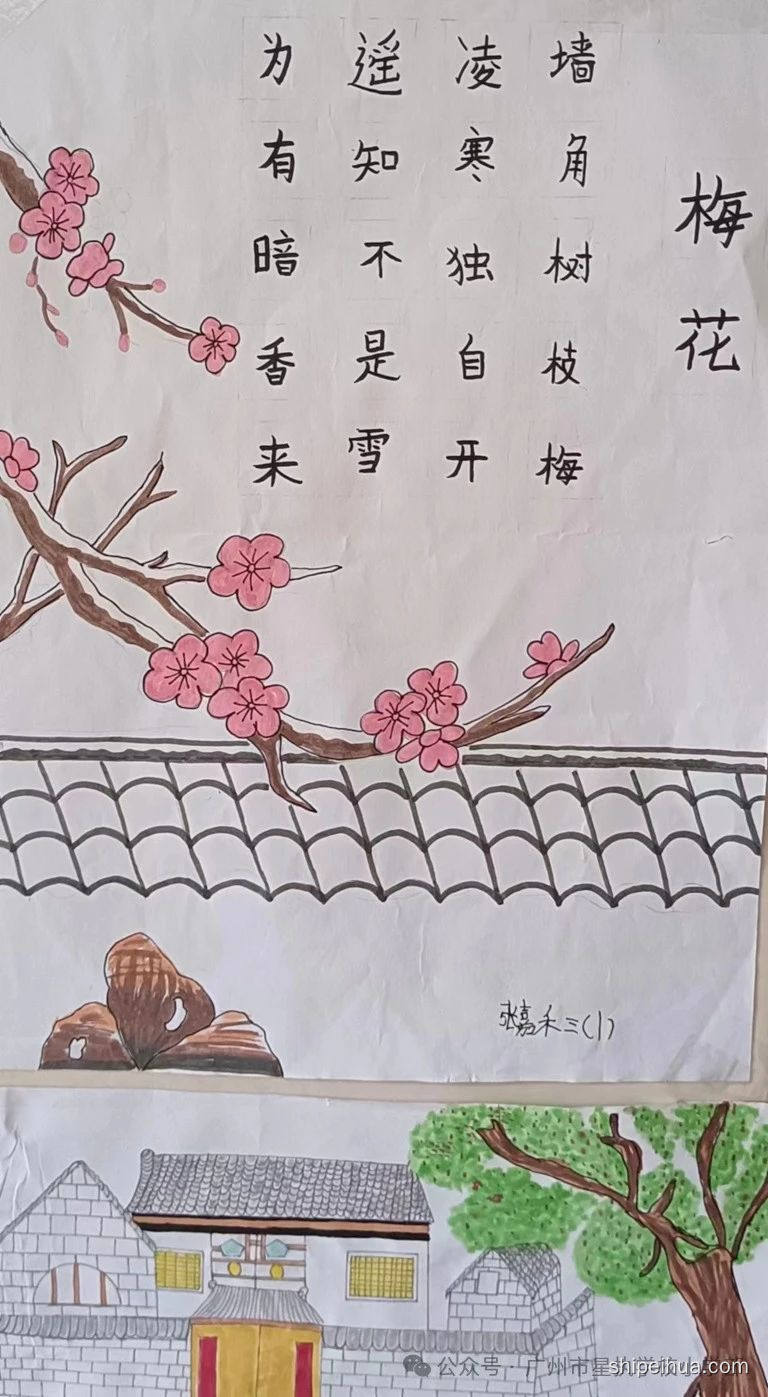 梅花
墙角树枝梅
凌寒独自开
遥知不是雪
为有暗香来
张嘉禾三(1)
公众号·广州市星
shipeihua.com